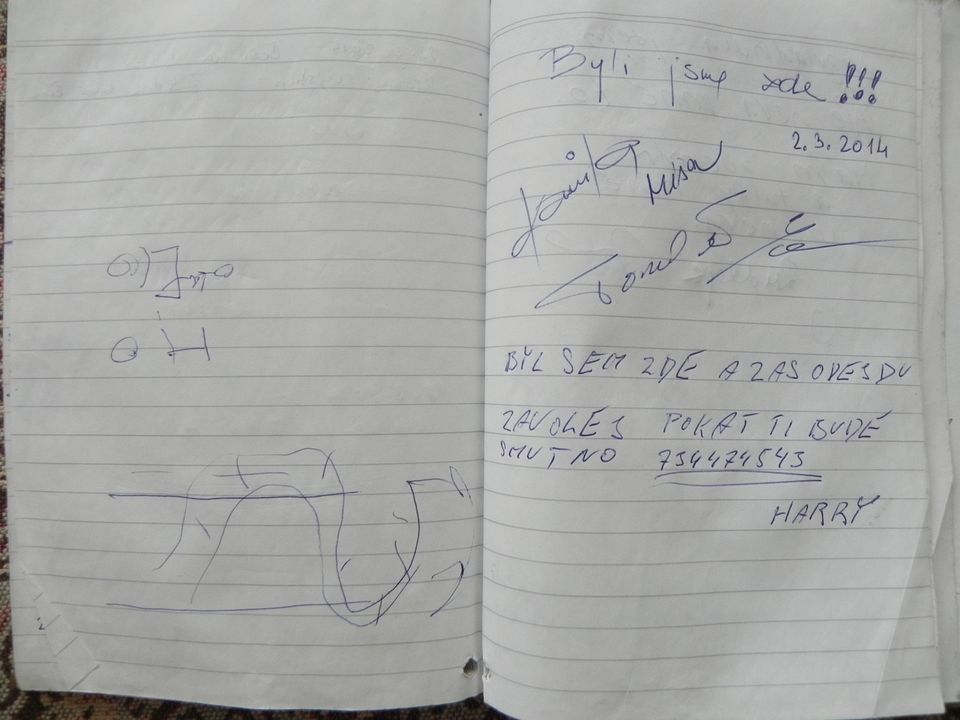 Byli jsme zde !!!
2.3.2014
Míša
BYL SEM ZDE A ZAS ODESDU
ZAVOLEJ POKAT TI BUDE
SMUTNO 734474543
HARRY